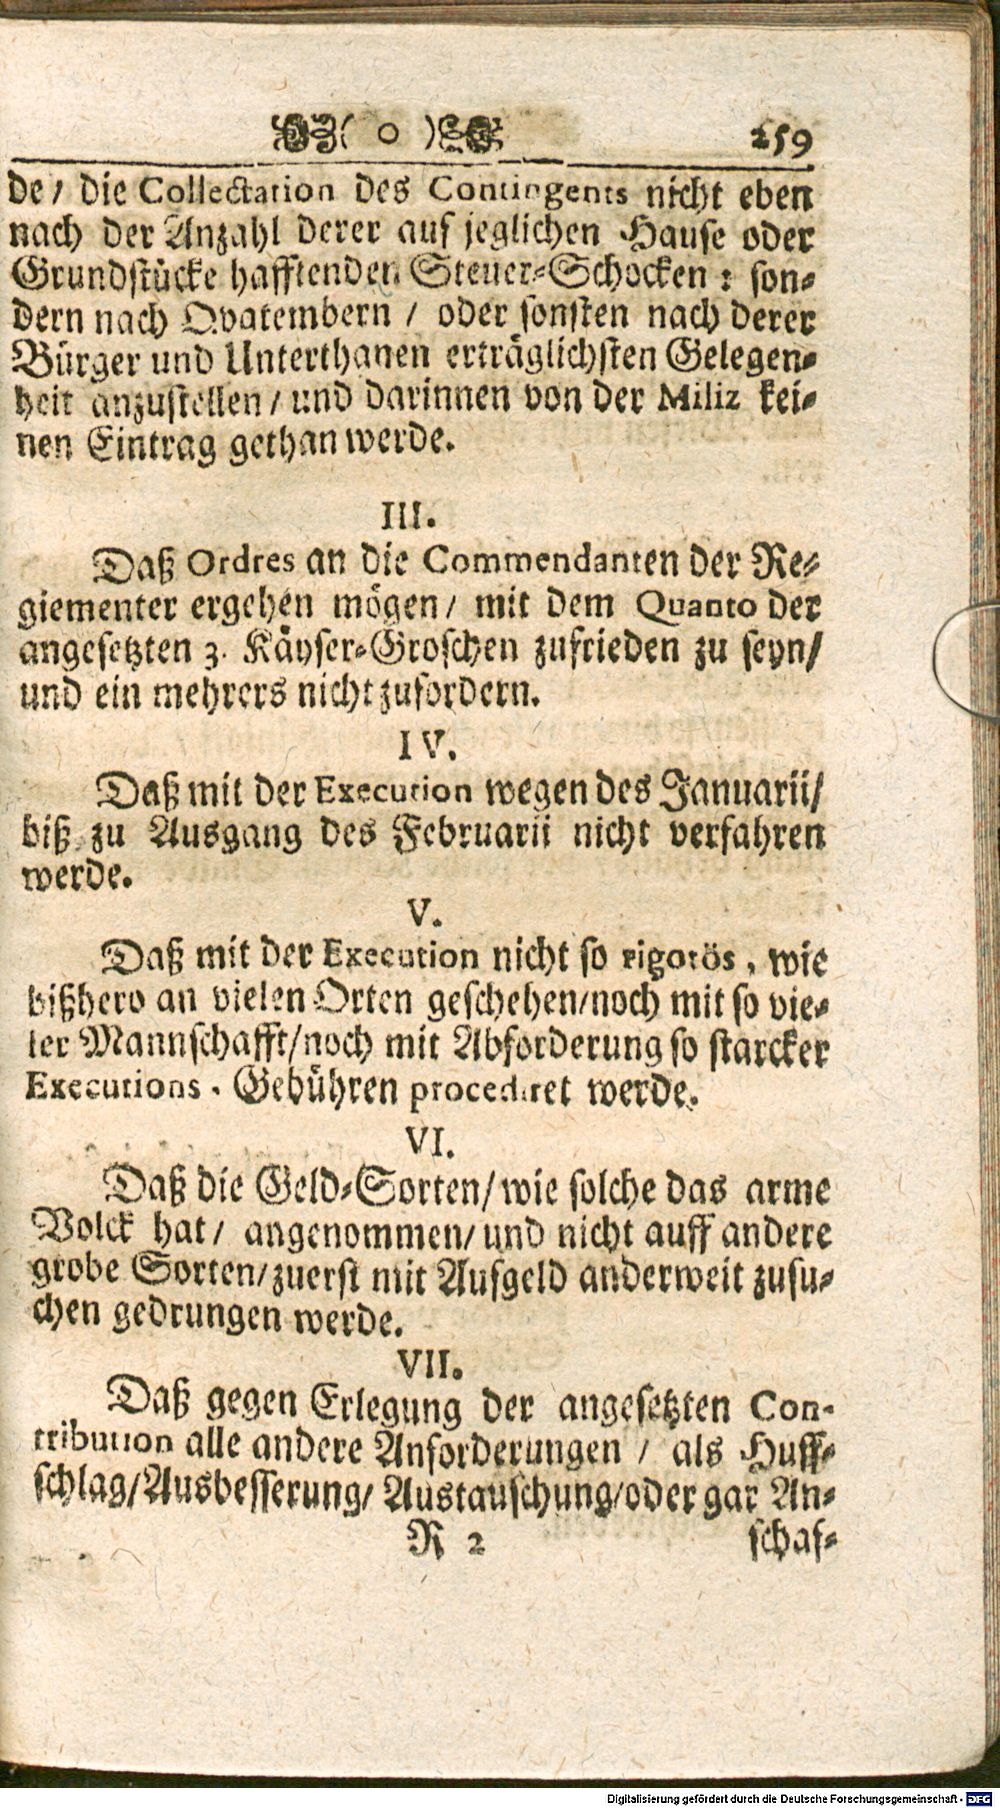 ( o ) 259
de/ die Collectation des Contingents nicht eben
nach der Anzahl derer auf jeglichen Hause oder
Grundstücke hafftenden Steuer-Schocken: son-
dern nach Qvatembern / oder sonsten nach derer
Bürger und Unterthanen erträglichsten Gelegen-
heit anzustellen/ und darinnen von der Miliz kei-
nen Eintrag gethan werde.
III.
Daß Ordres an die Commendanten der Re-
giementer ergehen mögen/ mit dem Quanto der
angesetzten 3. Käyser-Groschen zufrieden zu seyn/
und ein mehrers nicht zufordern.
IV.
Daß mit der Execution wegen des Januarii/
biß zu Ausgang des Februarii nicht verfahren
werde.
V.
Daß mit der Execution nicht so rigorös, wie
bißhero an vielen Orten geschehen/noch mit so vie-
ler Mannschafft/noch mit Abforderung so starcker
Executions-Gebühren procediret werde.
VI.
Daß die Geld-Sorten/wie solche das arme
Volck hat/ angenommen/ und nicht auff andere
grobe Sorten/zuerst mit Aufgeld anderweit zusu-
chen gedrungen werde.
VII.
Daß gegen Erlegung der angesetzten Con-
tribution alle andere Anforderungen / als Huff-
schlag/Ausbesserung/ Austauschung/oder gar An-
R 2 schaf-
Digitalisierung gefördert durch die Deutsche Forschungsgemeinschaft - DFG